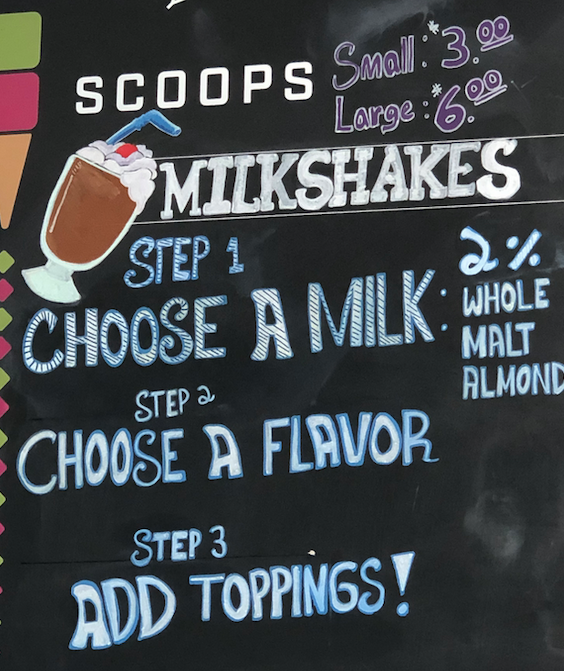 SCOOPS
Small: $3.00
Large: $6.00
MILKSHAKES
STEP 1
CHOOSE A MILK:
2%
WHOLE
MALT
ALMOND
STEP 2
CHOOSE A FLAVOR
STEP 3
ADD TOPPINGS!